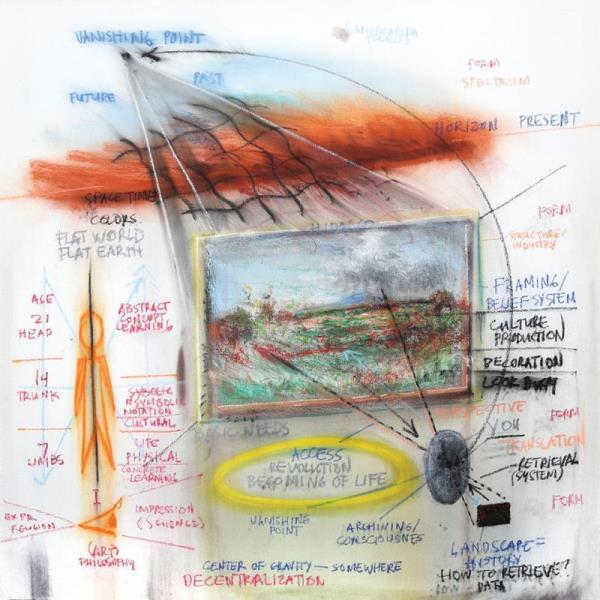 VANISHING POINT
PAST
FUTURE
FORM
SPECTRUM
HORIZON PRESENT
SPACE TIME
COLORS
FLAT WORLD
FLAT EARTH
FORM
STRUCTURE/
INDUSTRY
FRAMING/
BELIEF SYSTEM
CULTURE
PRODUCTION
DECORATION
LOOK BUSY
PERSPECTIVE
FORM
YOU
TRANSLATION
RETRIEVAL
(SYSTEM)
FORM
AGE
21
HEAD
ABSTRACT
CONCEPT
LEARNING
14
TRUNK
NOTATION
CULTURAL
7
LIMBS
LIFE
PHYSICAL
CONCRETE
LEARNING
BASIC NEEDS
ACCESS
REVOLUTION
BECOMING OF LIFE
I
RELIGION
IMPRESSION
(SCIENCE)
(ART)
PHILOSOPHY
VANISHING
POINT
ARCHINING/
CONSCIOUSNES
CENTER OF GRAVITY — SOMEWHERE
DECENTRALIZATION
LANDSCAPE =
HISTORY
HOW TO RETRIEVE?
DATA